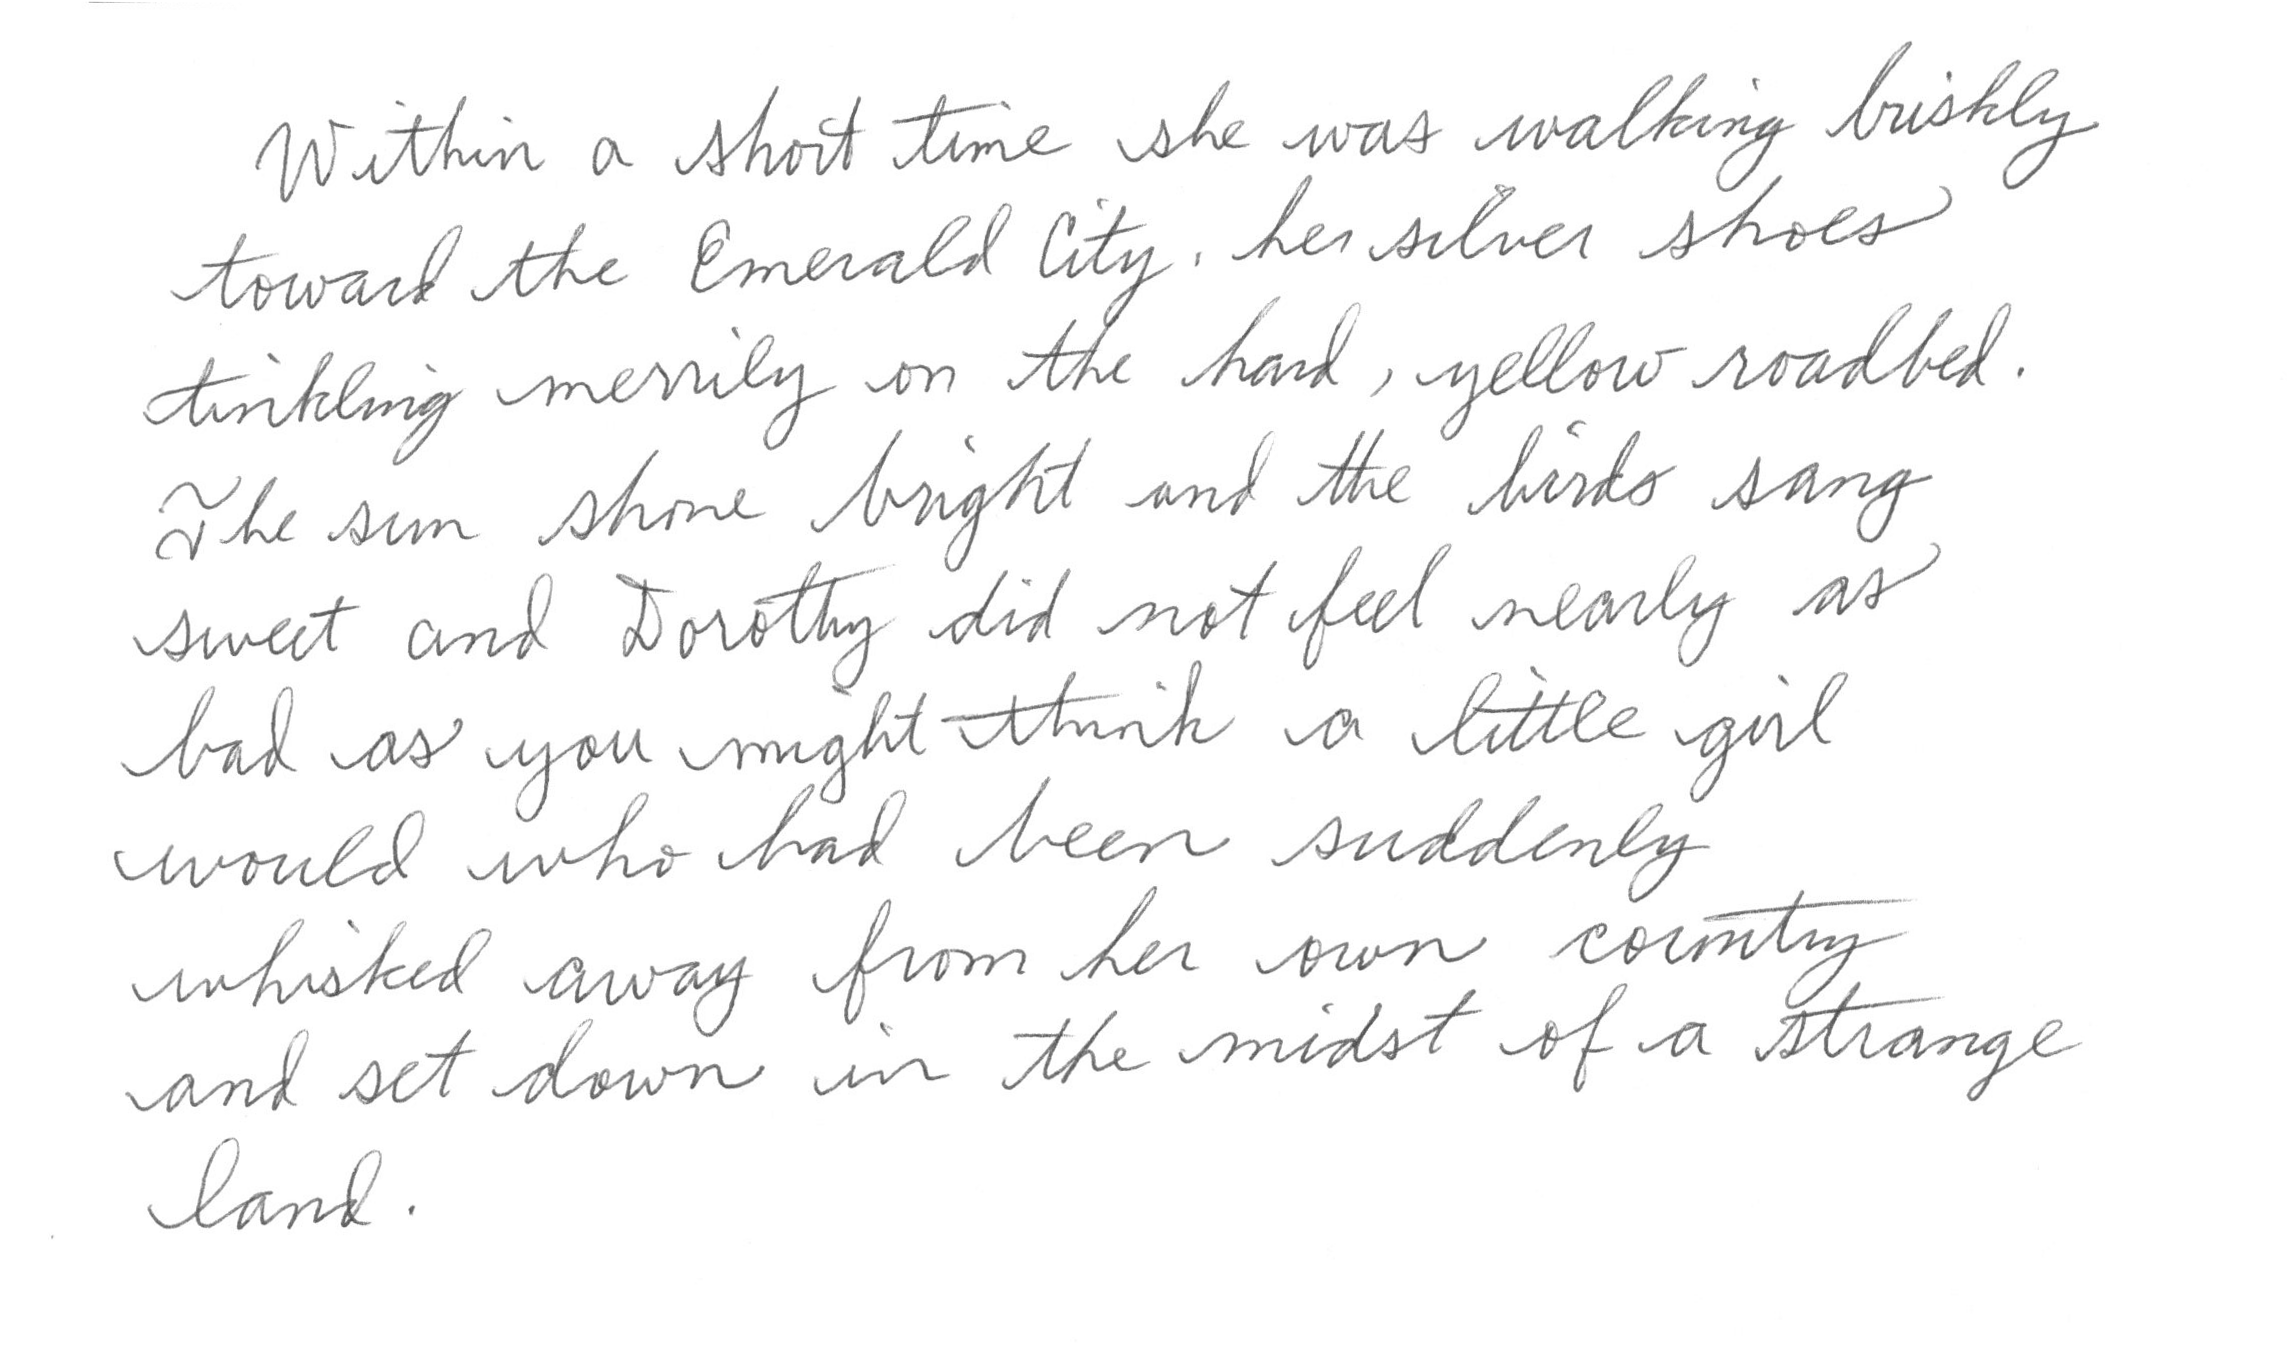 Within a short time she was walking briskly
toward the Emerald City, her silver shoes
tinkling merrily on the hard, yellow roadbed.
The sun shone bright and the birds sang
sweet and Dorothy did not feel nearly as
bad as you might think a little girl
would who had been suddenly
whisked away from her own country
and set down in the midst of a strange
land.